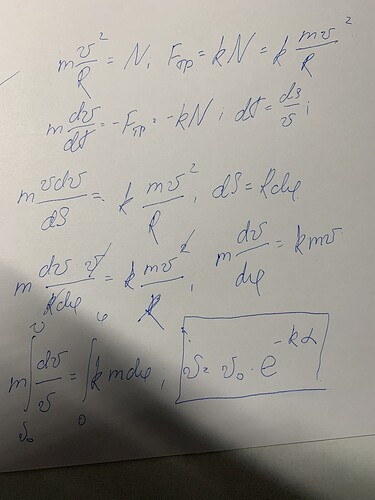 m v²/R = N, Fтр = kN = k mv²/R
m dv/dt = -Fтр = -kN; dt = dS/v;
m vdv/dS = k mv²/R, dS = Rdφ
m dv v/Rdφ = k mv²/R, m dv/dφ = kmv
m ∫_{v₀}^{v} dv/v = ∫_{0}^{φ} k m dφ, v = v₀ · e^{-kα}